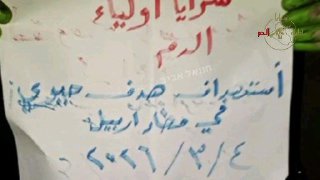 سرايا أولياء
الدم
أستهداف هدف حيوي
في مطار أربيل
٢٠٢٦/٣/٤